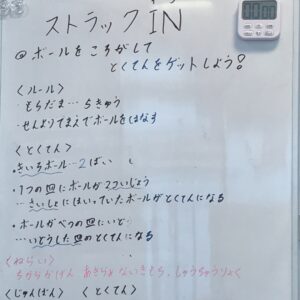 ストラックIN
@ボールをころがして
とくてんをゲットしよう?
〈ルール〉
・もちだま…5きゅう
・せんよりてまえでボールをはなす
〈とくてん〉
・きいろボール…2ばい
・1つの皿にボールが2ついじょう
…さいしょにはいっていたボールがとくてんになる
・ボールがべつの皿にいどう
…いどうした皿のとくてんになる
〈ねらい〉
ちからかげん、あきらめないきもち、しゅうちゅうりょく
〈じゅんばん〉 〈とくてん〉